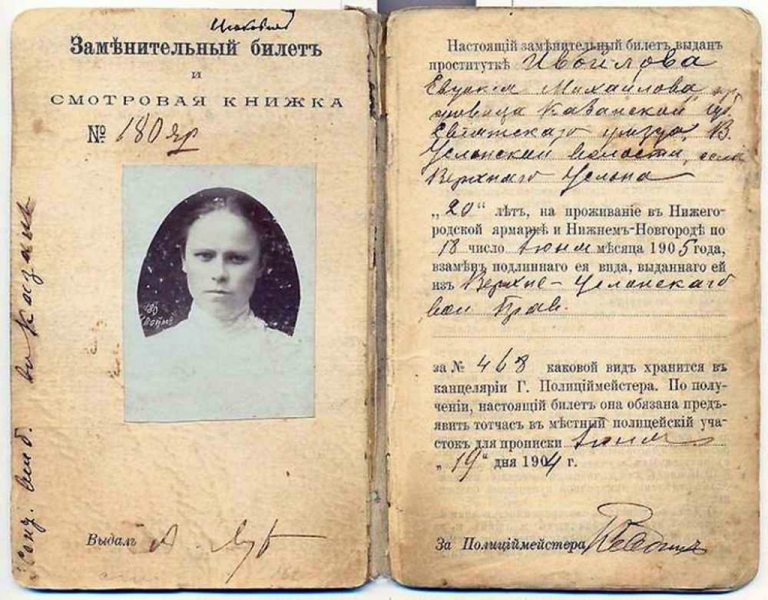 Замѣнительный билетъ
и
СМОТРОВАЯ КНИЖКА
№ 180 яр
Выдалъ
Настоящій замѣнительный билетъ выданъ
проституткѣ Ивойлова
Михайлова
Казанской губ
уѣзда, В.
Услонской волости, села
Верхняго Услона
„20“ лѣтъ, на проживаніе въ Нижего-
родской ярмаркѣ и Нижнемъ-Новгородѣ по
18 число Іюня мѣсяца 1905 года,
взамѣнъ подлиннаго ея вида, выданнаго ей
изъ Верхне-Услонскаго
вол. Прав.
за № 468 каковой видъ хранится въ
канцеляріи Г. Полиціймейстера. По полу-
ченіи, настоящій билетъ она обязана предъ-
явить тотчасъ въ мѣстный полицейскій уча-
стокъ для прописки Іюня
„19“ дня 1904 г.
За Полиціймейстера